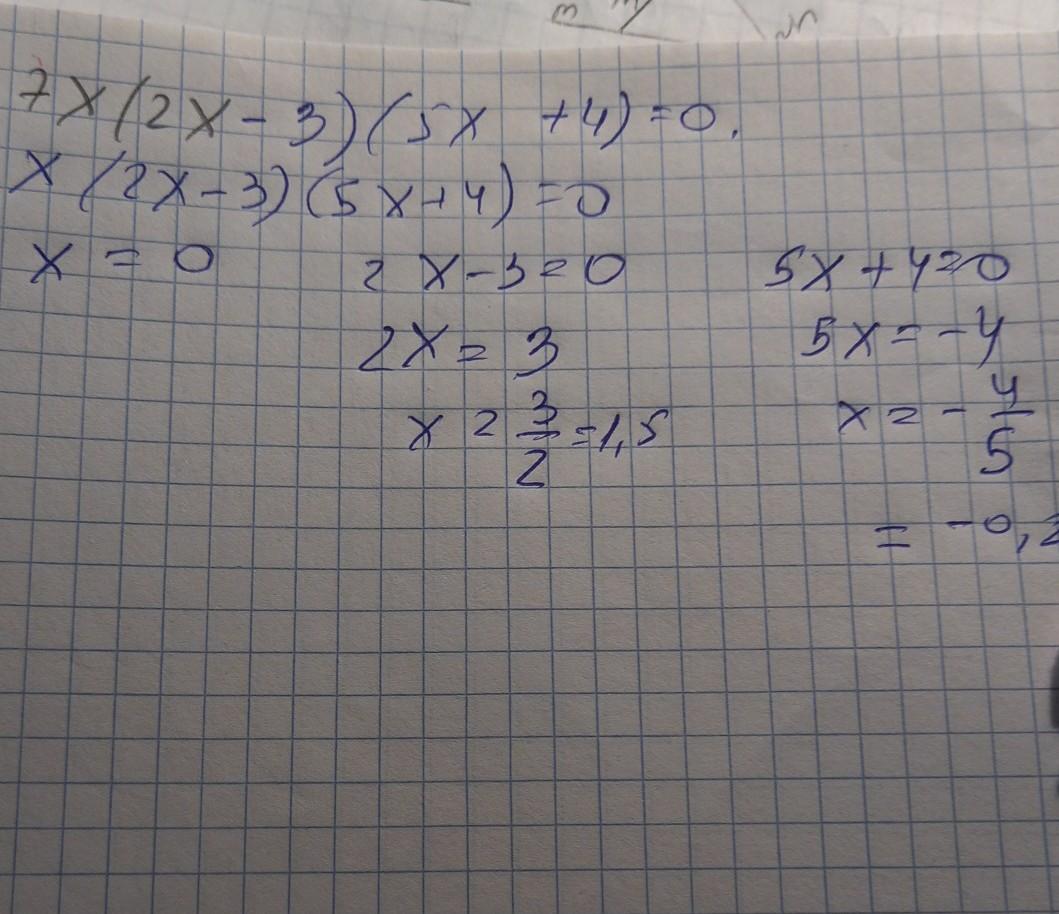 7x(2x-3)(5x +4)=0.
x(2x-3)(5x+4)=0
x = 0 2x-3=0 5x+4=0
2x= 3 5x=-4
x = 3/2 =1,5 x=-4/5
= -0,2